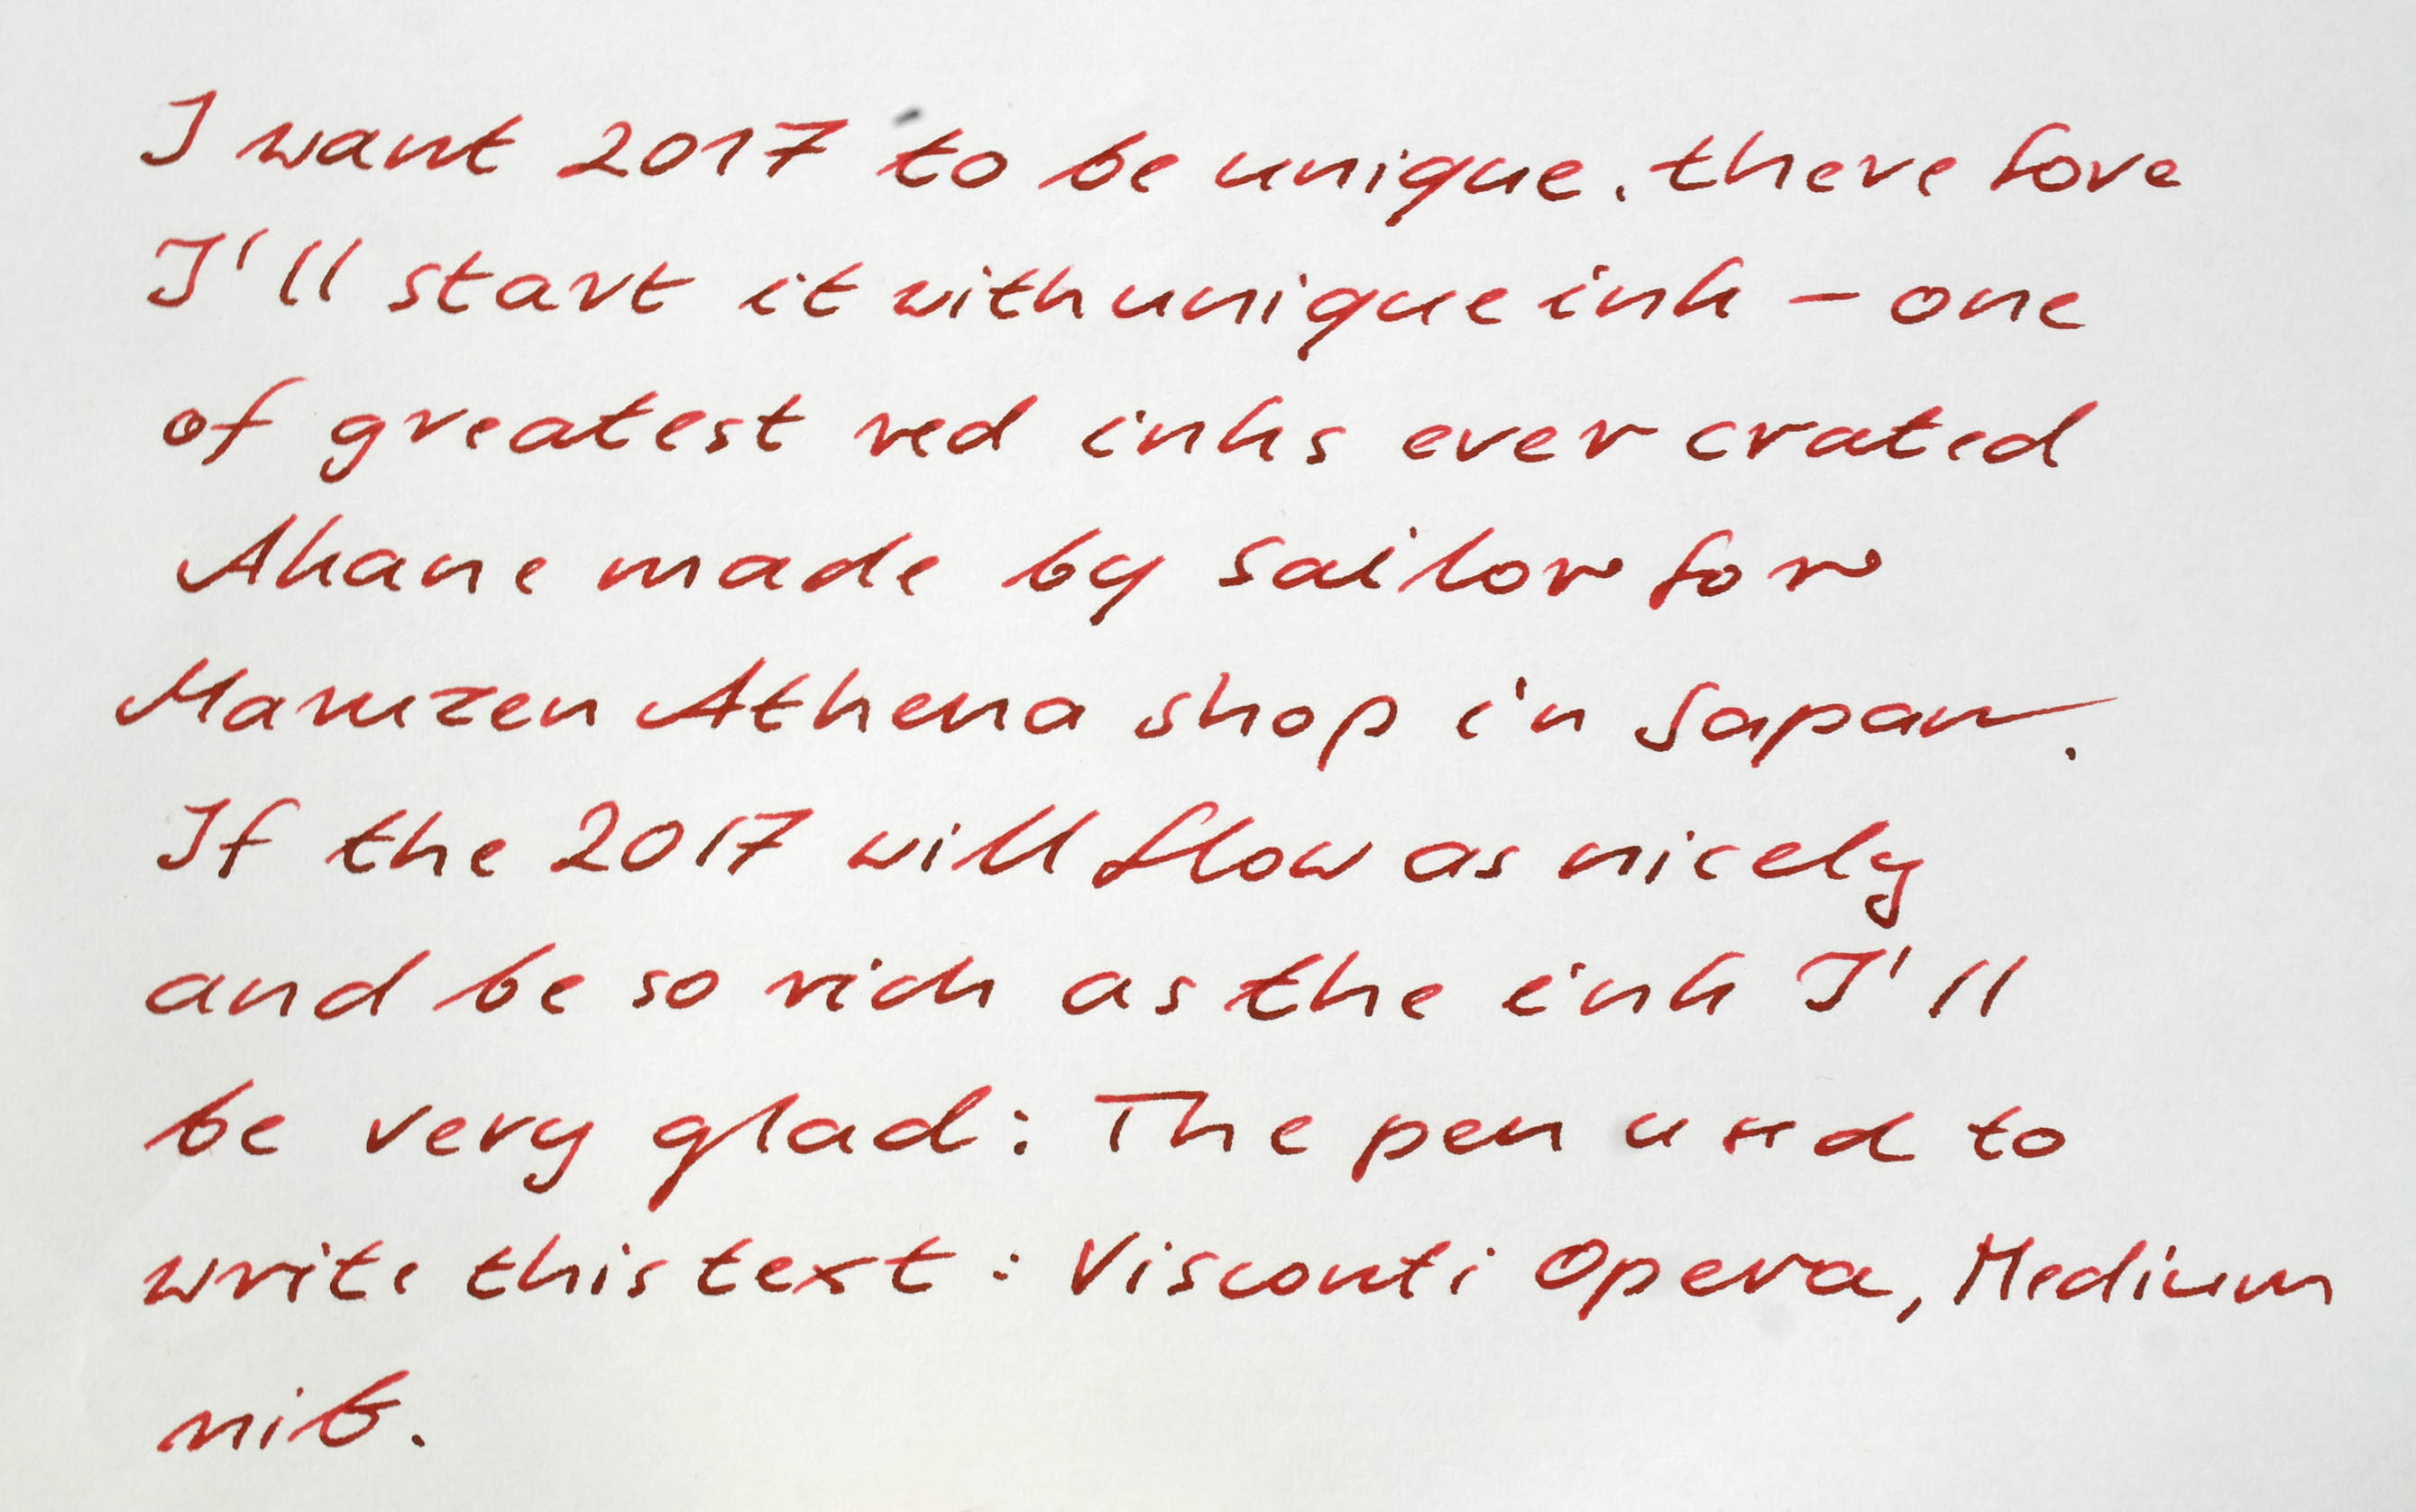 I want 2017 to be unique. therefore
I'll start it with unique ink – one
of greatest red inks ever crated
Akane made by Sailor for
Maruzen Athena shop in Japan.
If the 2017 will flow as nicely
and be so rich as the ink I'll
be very glad: The pen used to
write this text: Visconti Opera, Medium
nib.